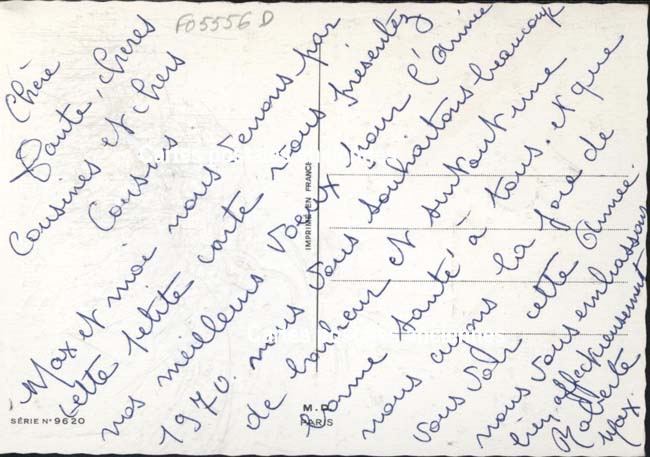 F05556D
Chère
Tante, chères
Cousines et chers
Cousins
Max et moi nous venons par
cette petite carte vous présentez
nos meilleurs voeux pour l'Année
1970. nous vous souhaitons beaucoup
de bonheur et surtout une
bonne santé à tous. et que
nous aurons la joie de
vous voir cette Année.
nous vous embrassons
bien affectueusement
Roberte
Max.
IMPRIMÉ EN FRANCE
SÉRIE N° 9620
M. D.
PARIS